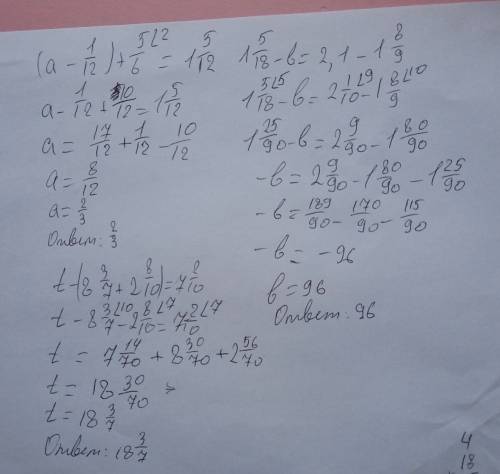 (a - 1/12) + 5/6 ∠2 = 1 5/12
a - 1/12 + 10/12 = 1 5/12
a = 17/12 + 1/12 - 10/12
a = 8/12
a = 2/3
Ответ: 2/3
t - (8 3/7 + 2 8/10) = 7 2/10
t - 8 3/7 ∠10 - 2 8/10 ∠7 = 7 2/10 ∠7
t = 7 14/70 + 8 30/70 + 2 56/70
t = 18 30/70
t = 18 3/7
Ответ: 18 3/7
1 5/18 - в = 2,1 - 1 8/9
1 5/18 ∠5 - в = 2 1/10 ∠9 - 1 8/9 ∠10
1 25/90 - в = 2 9/90 - 1 80/90
- в = 2 9/90 - 1 80/90 - 1 25/90
- в = 189/90 - 170/90 - 115/90
- в = - 96
в = 96
Ответ: 96
4
18